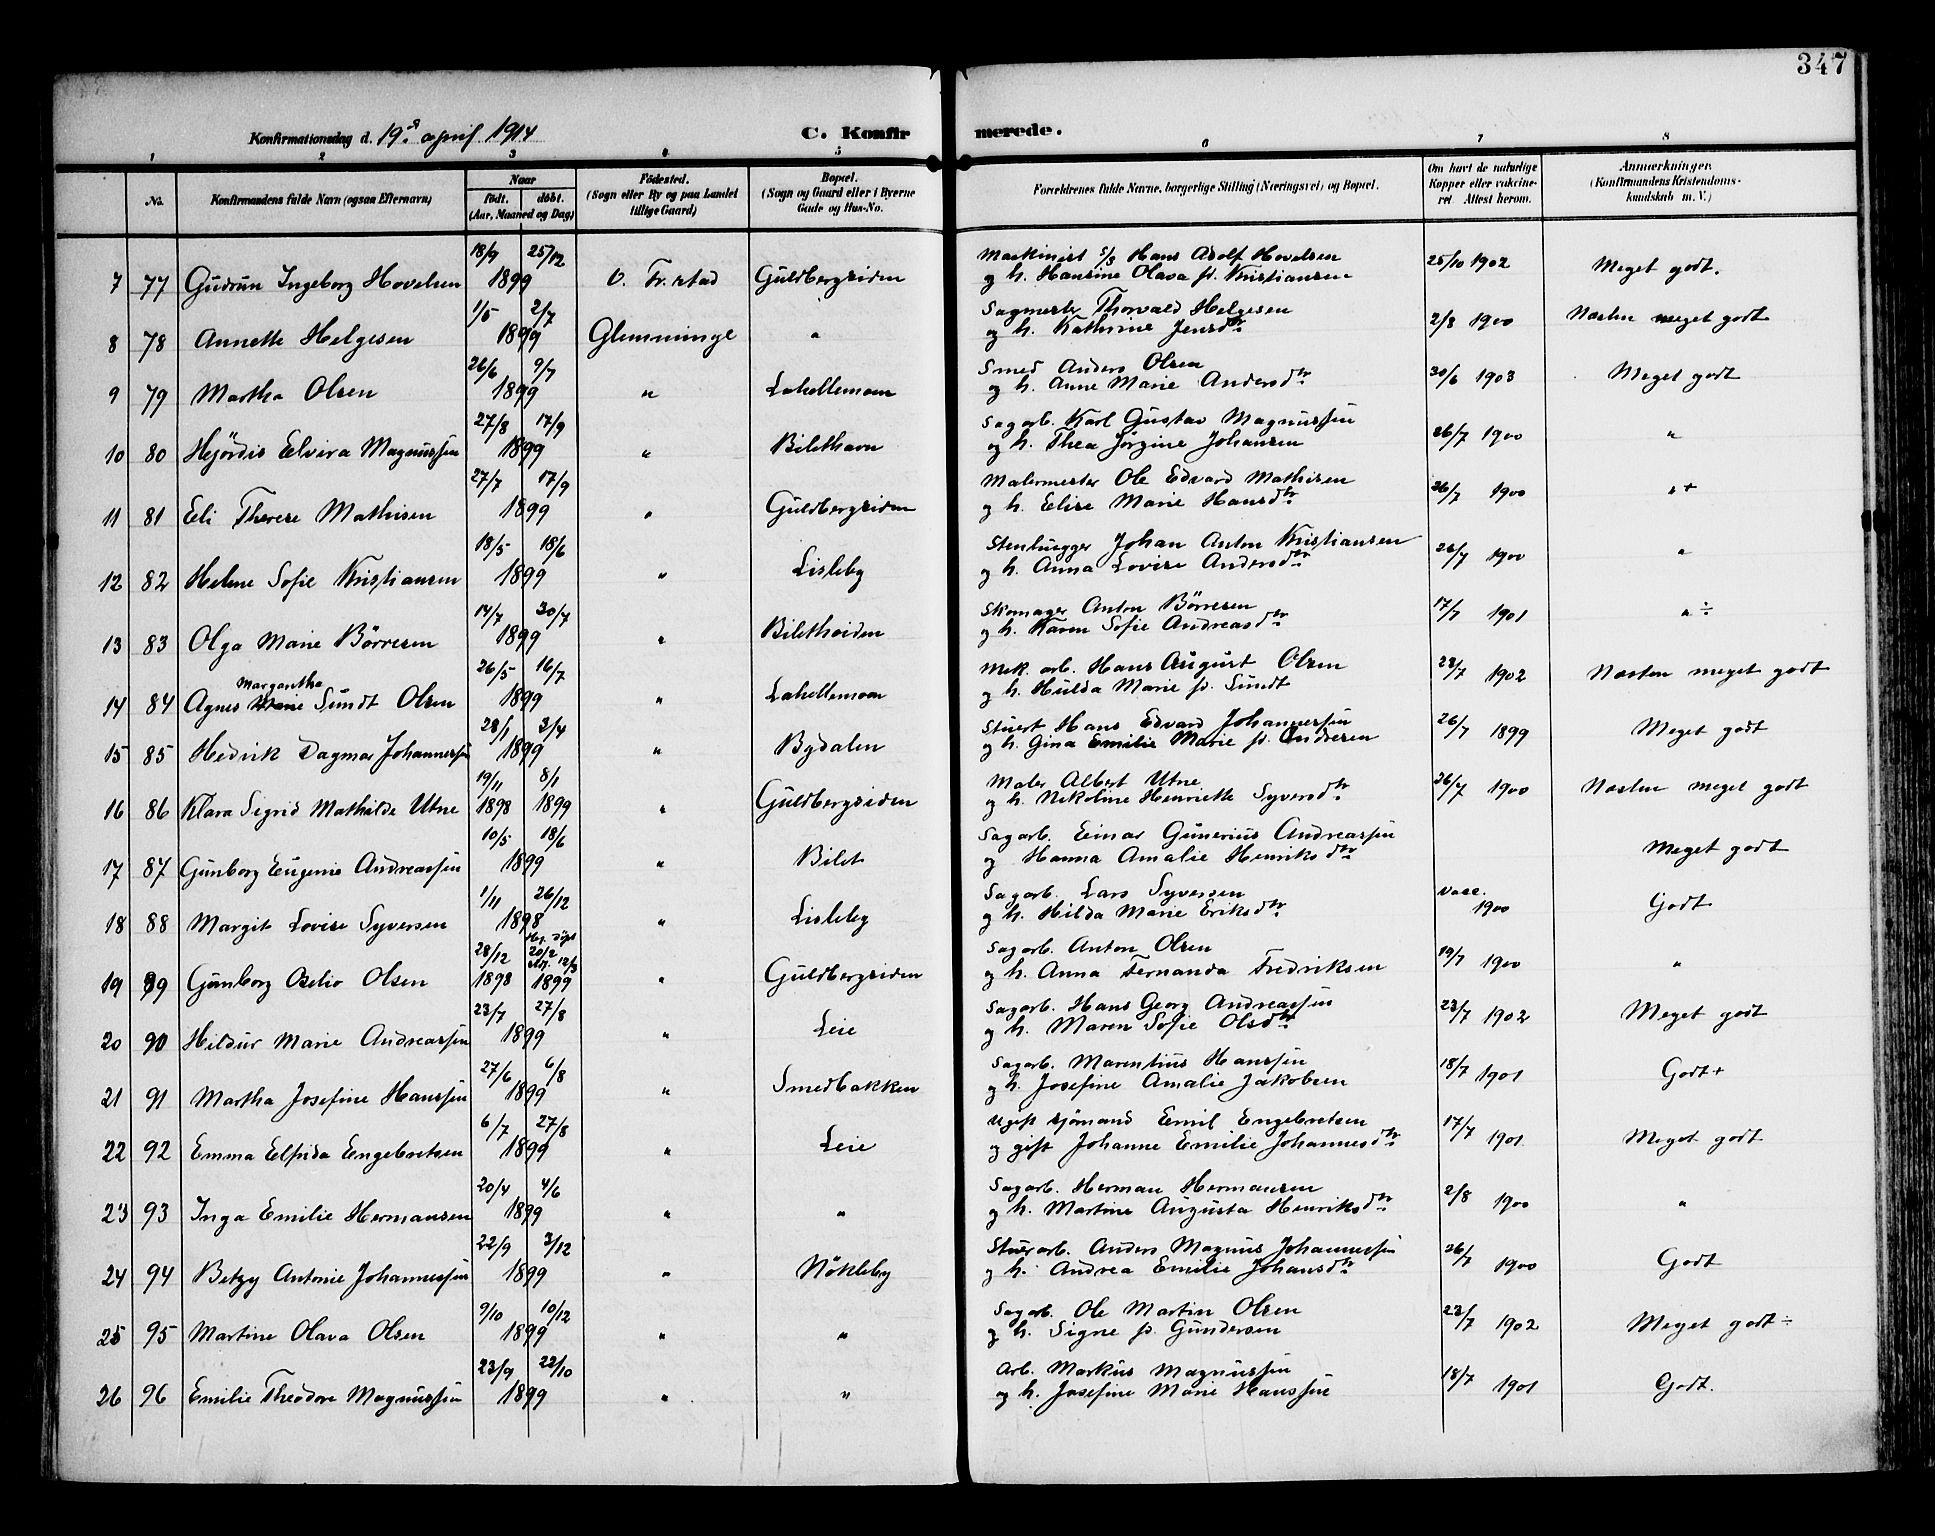 347
Konfirmationsdag d. 19. april 1914
C. Konfirmerede.
1 2 3 4 5 6 7 8
No. Konfirmandens fulde Navn (ogsaa Efternavn) Naar født. døbt. (Aar, Maaned og Dag) Fødested. (Sogn eller By og paa Landet tillige Gaard) Bopæl. (Sogn og Gaard eller i Byerne Gade og Hus-No. Forældrenes fulde Navne, borgerlige Stilling (Næringsvei) og Bopæl. Om havt de naturlige Kopper eller vakcineret Attest herom. Anmærkninger. (Konfirmandens Kristendomskundskab m. V.)
7 77 Gudrun Ingeborg Hovelsen 18/9 25/12 1899 O. Fr.stad Guldbergsiden Maskinist S/S Hans Adolf Hovelsen
og h. Hansine Olava f. Kristiansen 25/10 1902 Meget godt.
8 78 Annette Helgesen 1/5 2/7 1899 Glemminge " Sagmester Thorvald Helgesen
og h. Kathrine Jensdtr 2/8 1900 Næsten meget godt
9 79 Martha Olsen 26/6 9/7 1899 " Lahellemoen Smed Anders Olsen
og h. Anne Marie Andersdtr 30/6 1903 Meget godt
10 80 Hjørdis Elvira Magnussen 27/8 17/9 1899 " Bilethavn Sagarb. Karl Gustav Magnussen
og h. Thea Jørgine Johansen 26/7 1900 "
11 81 Eli Therese Mathisen 27/7 17/9 1899 " Guldbergsiden Malermester Ole Edvard Mathisen
og h. Elise Marie Hansdtr 26/7 1900 "+
12 82 Helene Sofie Kristiansen 18/5 18/6 1899 " Lisleby Stenhugger Johan Anton Kristiansen
og h. Anna Lovise Andersdtr 26/7 1900 "
13 83 Olga Marie Börresen 14/7 30/7 1899 " Bilethøiden Skomager Anton Börresen
og h. Karen Sofie Andreasdtr 17/7 1901 " ÷
14 84 Agnes Margantha Sundt Olsen 26/5 16/7 1899 " Lahellemoen Mek. arb. Hans August Olsen
og h. Hulda Marie f. Sundt 23/7 1902 Næsten meget godt
15 85 Hedvik Dagmar Johannessen 28/1 3/4 1899 " Bydalen Stuert Hans Edvard Johannessen
og h. Gina Emilie Marie f. Andresen 26/7 1899 Meget godt
16 86 Klara Sigrid Mathilde Utne 19/11 1898 8/1 1899 " Guldbergsiden Maler Albert Utne
og h. Nikoline Henriette Syversdtr 26/7 1900 Næsten meget godt
17 87 Gunborg Eugenie Andreassen 10/5 18/6 1899 " Bilet Sagarb. Einar Gunerius Andreassen
og Hanna Amalie Henriksdtr Meget godt
18 88 Margit Lovise Syversen 1/11 26/12 1898 " Lisleby Sagarb. Lars Syversen
og h. Hilda Marie Eriksdtr Vacc. 1900 Godt
19 89 Gunborg Oselio Olsen 28/12 1898 Hj. døpt 20/2 12/3 1899 " Guldbergsiden Sagarb. Anton Olsen
og h. Anna Fernanda Fredriksen 19/7 1900 "
20 90 Hildur Marie Andreassen 23/7 27/8 1899 " Leie Sagarb. Hans Georg Andreassen
og h. Maren Sofie Olsdtr 23/7 1902 Meget godt
21 91 Martha Josefine Hanssen 27/6 6/8 1899 " Smedbakken Sagarb. Marentius Hanssen
og h. Josefine Amalie Jakobsen 18/7 1901 Godt+
22 92 Emma Elfrida Engebretsen 6/7 27/8 1899 " Leie Ugift sjømand Emil Engebretsen
og gift Johanne Emilie Johannesdtr 17/7 1901 Meget godt
23 93 Inga Emilie Hermansen 20/4 4/6 1899 " " Sagarb. Herman Hermansen
og h. Martine Augusta Henriksdtr 2/8 1900 "
24 94 Betzy Antonie Johannessen 22/9 3/12 1899 " Nökleby Stuerarb. Anders Magnus Johannessen
og h. Andrea Emilie Johansdtr 26/7 1900 Godt
25 95 Martine Olava Olsen 9/10 10/12 1899 " " Sagarb. Ole Martin Olsen
og h. Signe f. Gundersen 23/7 1902 Meget godt ÷
26 96 Emilie Theodore Magnussen 23/9 22/10 1899 " " Arb. Markus Magnussen
og h. Josefine Marie Hanssen 18/7 1901 Godt.